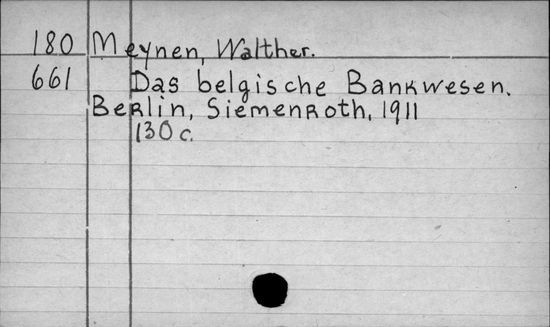 180 Meynen, Walther.
661 Das belgische Bankwesen.
Berlin, Siemenroth, 1911
130 c.